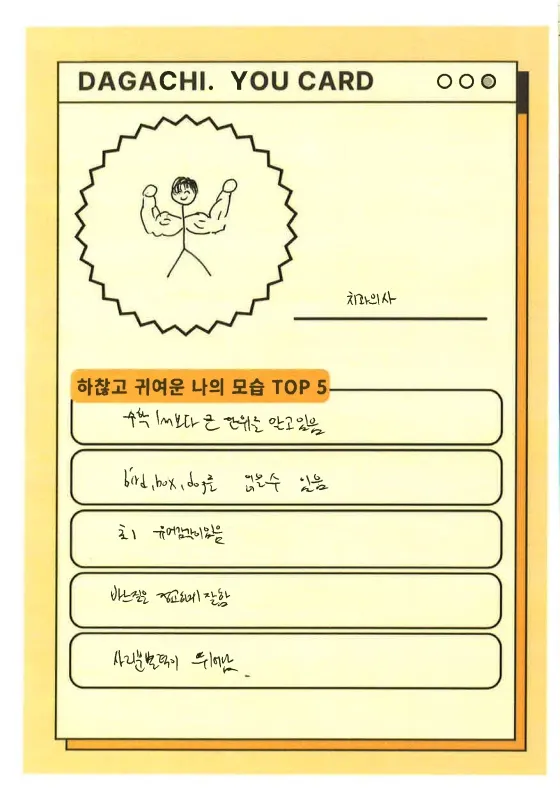 DAGACHI. YOU CARD
치과의사
하찮고 귀여운 나의 모습 TOP 5
수학 1m보다 큰 단위를 알고있음
bird, box, dog를 읽을수 있음
초1 유머감각이있음
바느질은 정교하게 잘함
사리분별력이 뛰어남.